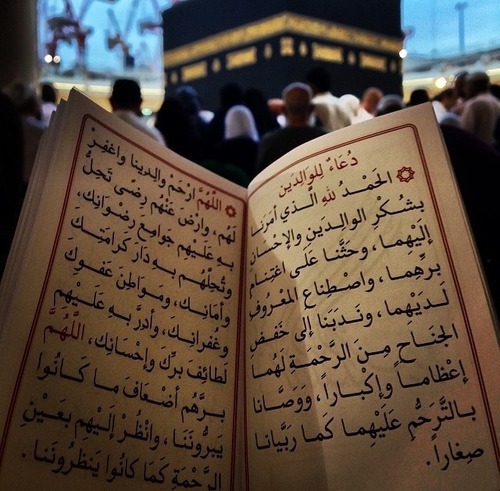 دُعَاءٌ لِلوَالِدَينِ
الْحَمْدُ للهِ الَّذي أَمَرَنَا
بِشُكرِ الوَالِدَينِ والإحْسَانِ
إِلَيْهِمَا، وحَثَّنَا عَلَى اغْتِنَامِ
بِرِّهِمَا، واصْطِنَاعِ المَعْرُوفِ
لَدَيْهِمَا، ونَدَبَنَا إلى خَفْضِ
الجَنَاحِ مِنَ الرَّحْمَةِ لَهُمَا
إعْظَاماً وإكْبَاراً، وَوَصَّانَا
بالتَّرَحُّمِ عَلَيْهِمَا كَمَا رَبَّيَانَا
صِغَاراً.
اللَّهُمَّ ارْحَمْ والِدِينا واغْفِرْ
لَهُم، وارْضَ عَنْهُم رِضىً تُحِلُّ
بِهِ عَلَيهِم جَوامِعَ رِضْوَانِكَ،
وتُحِلُّهُم بِهِ دَارَ كَرَامَتِكَ
وَأَمَانِكَ، ومَوَاطِنَ عَفْوِكَ
وغُفْرَانِكَ، وأدِرَّ بِهِ عَلَيْهِم
لَطَائِفَ بِرِّكَ وإحْسَانِكَ، اللَّهُمَّ
بِرَّهُم أَضْعَافَ ما كَانُوا
يَبرُّونَنَا، وانْظُرْ إلَيْهِم بِعَيْنِ
الرَّحْمَةِ كَمَا كَانُوا يَنظُرُونَنَا.